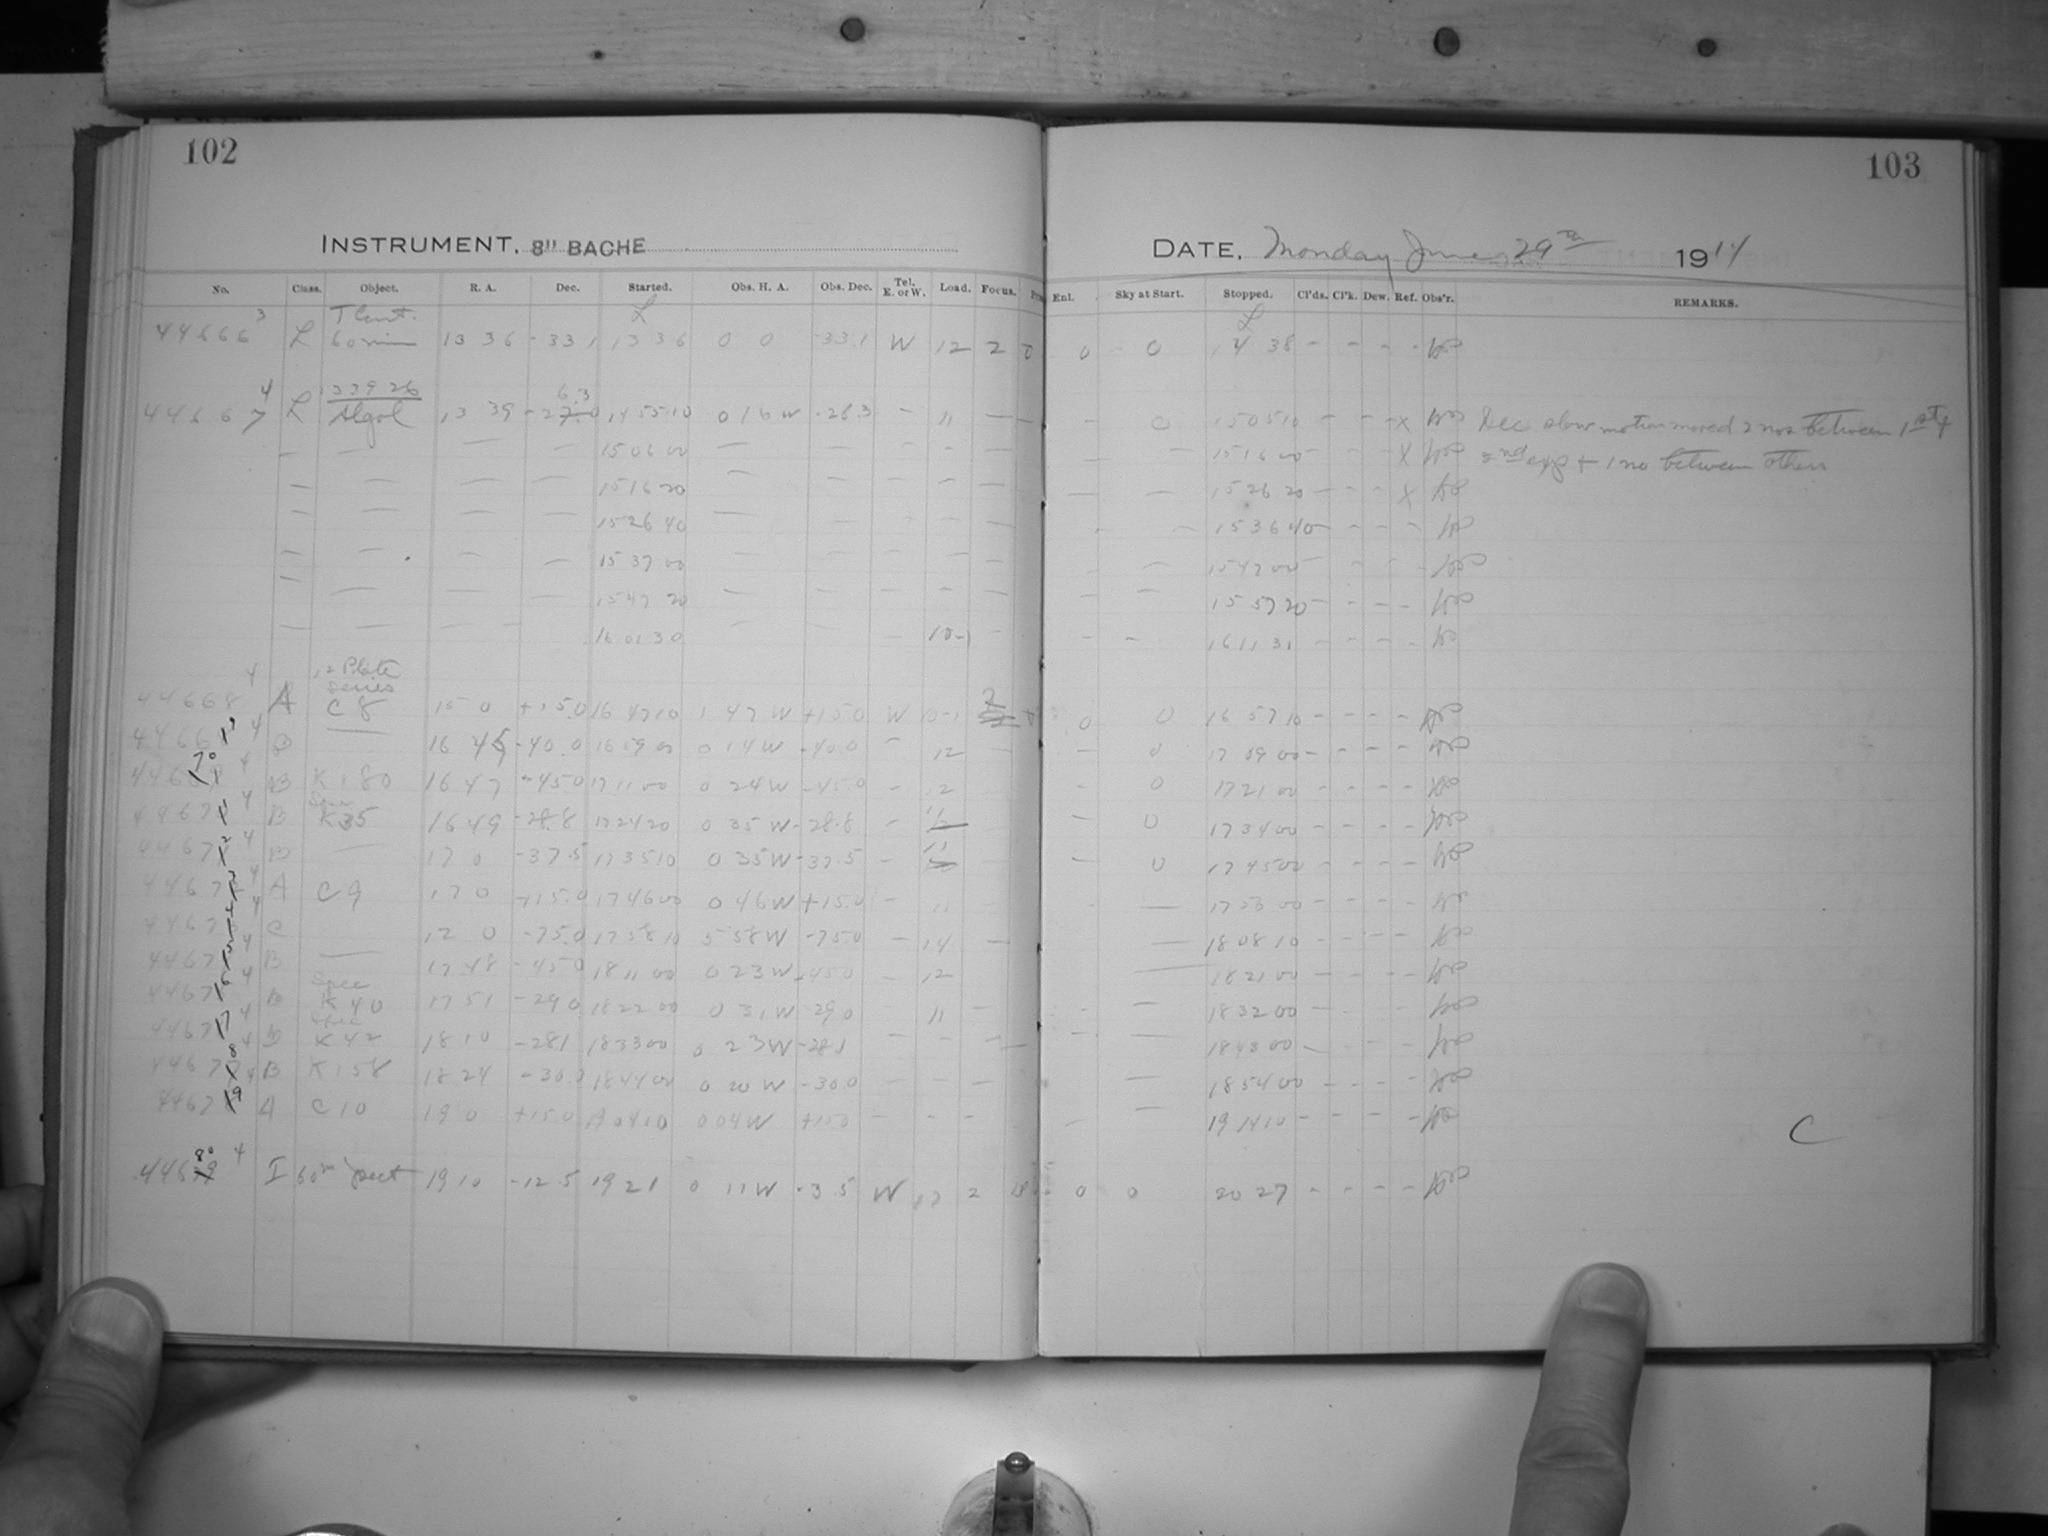 102
103
INSTRUMENT. 8" BACHE
DATE. Monday June 29th 1914
No. Class. Object. R. A. Dec. Started. Obs. H. A. Obs. Dec. Tel. E. or W. Load. Focus. Enl. Sky at Start. Stopped. Cl'ds. Cl'k. Dew. Ref. Obs'r. REMARKS.
T Cent. L L
44666 3 L 60 min 13 36 -33.1 13 36 0 0 -33.1 W 12 2 0 0 14 38 - - - -
133926 6.3
44667 4 L Algol 13 39 -27.0 14 55 10 0 16 W -26.3 - 11 - - 0 15 05 10 - - - X Dec slow motion moved 2 nos between 1st +
15 06 00 15 16 00 X 2nd exp + 1 no between others
15 16 20 15 26 20 - - - X
15 26 40 15 36 40 - - - -
15 37 00 15 47 00
15 47 20 15 57 20 - - - -
16 01 30 10-1 16 11 31 - - - -
12 Plate
series
44668 4 A C 8 15 0 +15.0 16 47 10 1 47 W +15.0 W 10-1 2 0 0 16 57 10 - - - -
4466 4 B — 16 45 -40.0 16 59 00 0 14 W -40.0 - 12 0 17 09 00 - - - -
446 70 4 B K 180 16 47 -45.0 17 11 00 0 24 W -45.0 - 12 0 17 21 00 - - - -
Spec
4467 4 B K 35 16 49 -28.8 17 24 20 0 35 W -28.8 - 11 0 17 34 00 - - - -
4467 2 4 B — 17 0 -37.5 17 35 10 0 35 W -37.5 - 11 0 17 45 00 - - - -
4467 4 A C 9 17 0 +15.0 17 46 00 0 46 W +15.0 - 11 — 17 53 00 - - - -
4467 4 C 12 0 -75.0 17 58 10 5 58 W -75.0 - 14 - — 18 08 10 - - - -
4467 4 B — 17 48 -45.0 18 11 00 0 23 W -45.0 - 12 — 18 21 00 - - - -
Spec
4467 6 4 B K 40 17 51 -29.0 18 22 00 0 31 W -29.0 11 - — 18 32 00
Spec
4467 7 4 B K 42 18 10 -28.1 18 33 00 0 23 W -28.1 - - - — 18 43 00
4467 8 4 B K 158 18 24 -30.0 18 44 00 0 20 W -30.0 - - - — 18 54 00 - - - -
4467 9 A C 10 19 0 +15.0 19 04 10 0 04 W +15.0 - - - — 19 14 10 - - - -
C
446 80 4 I 60m 19 10 -12.5 19 21 0 11 W -3.5 W 2 0 0 20 27 - - - -